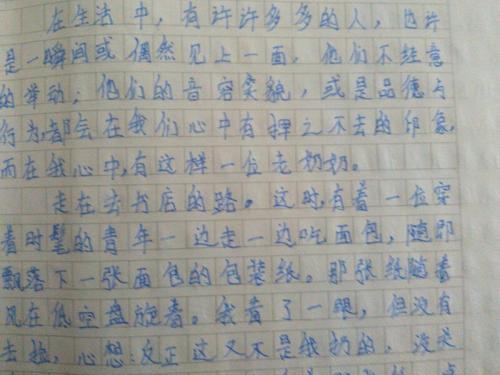 在生活中，有许许多多的人，也许
是一瞬间或偶然见上一面，他们不经意
的举动；他们的音容笑貌，或是品德与
行为，都会在我们心中有挥之不去的印象，
而在我心中，有这样一位老奶奶。
走在去书店的路。这时，有着一位穿
着时髦的青年一边走一边吃面包，随即
飘落下一张面包的包装纸。那张纸随着
风在低空盘旋着。我看了一眼，但没有
去捡，心想：反正这又不是我扔的，没关